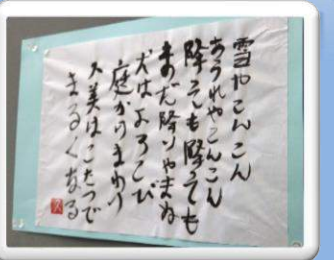 雪やこんこん
あられやこんこん
降っても降っても
まだ降りやまぬ
犬はよろこび
庭かけまわり
久美はこたつで
まるくなる
久